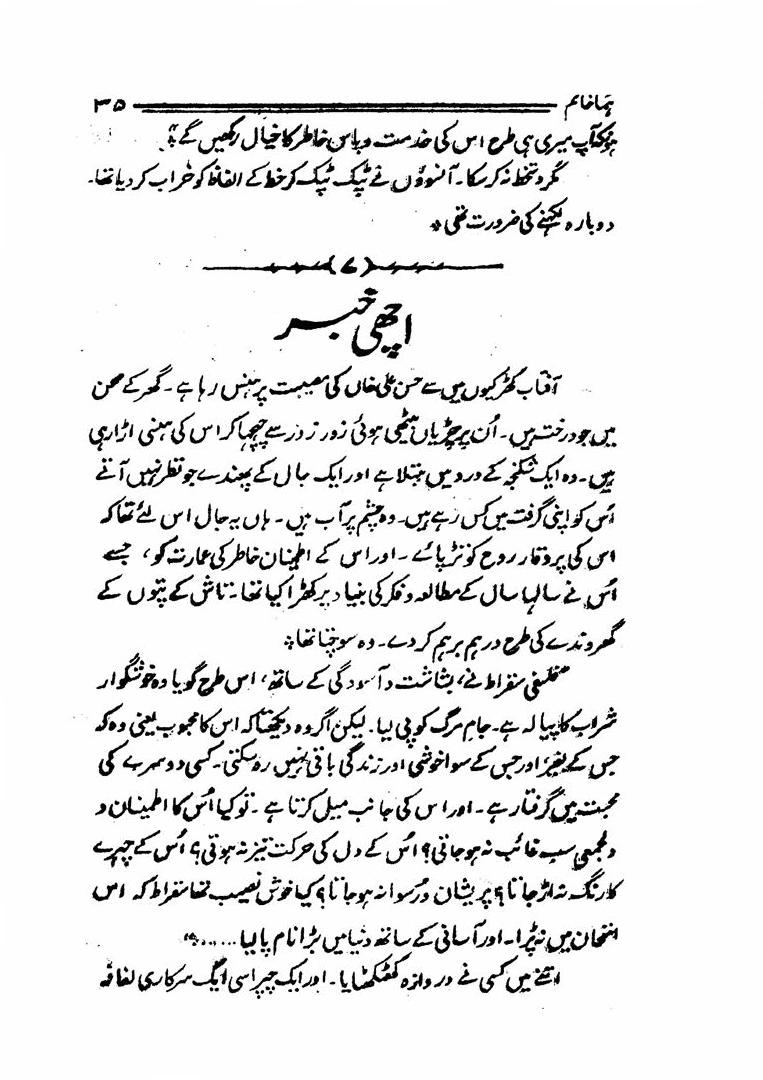 ہما خانم ۳۵
ہونگے آپ میری ہی طرح اس کی خدمت و پاس خاطر کا خیال رکھیں گے"۔
مگر دستخط نہ کر سکا۔ آنسوؤں نے ٹپک ٹپک کر خط کے الفاظ کو خراب کر دیا تھا۔
دوبارہ لکھنے کی ضرورت تھی *
(۷)
اچھی خبر
آفتاب کھڑکیوں میں سے حسن علی خاں کی مصیبت پر ہنس رہا ہے۔ گھر کے صحن
میں جو درخت ہیں۔ اُن پر چڑیاں بیٹھی ہوئی زور زور سے چہچہا کر اس کی ہنسی اڑا رہی
ہیں۔ وہ ایک شکنجہ کے درد میں مبتلا ہے اور ایک جال کے پھندے جو نظر نہیں آتے
اُس کو اپنی گرفت میں کس رہے ہیں۔ وہ چشم پر آب ہیں۔ ہاں یہ جال اس لئے تھا کہ
اس کی پر وقار روح کو تڑپائے۔ اور اس کے اطمینان خاطر کی عمارت کو، جسے
اُس نے سالہا سال کے مطالعہ و فکر کی بنیاد پر کھڑا کیا تھا۔ تاش کے پتوں کے
گھروندے کی طرح درہم برہم کر دے۔ وہ سوچتا تھا *
"فلسفی سقراط نے، بشاشت و آسودگی کے ساتھ، اس طرح گویا وہ خوشگوار
شراب کا پیالہ ہے۔ جام مرگ کو پی لیا۔ لیکن اگر وہ دیکھتا کہ اس کا محبوب یعنی وہ کہ
جس کے بغیر اور جس کے سوا خوشی اور زندگی باقی نہیں رہ سکتی۔ کسی دوسرے کی
محبت میں گرفتار ہے۔ اور اس کی جانب میل کرتا ہے۔ تو کیا اُس کا اطمینان و
دلجمعی سب غائب نہ ہو جاتی؟ اُس کے دل کی حرکت تیز نہ ہوتی؟ اُس کے چہرے
کا رنگ نہ اڑ جاتا؟ پریشان و رسوا نہ ہو جاتا؟ کیا خوش نصیب تھا سقراط کہ اس
امتحان میں نہ پڑا۔ اور آسانی کے ساتھ دنیا میں بڑا نام پا لیا ......"
اتنے میں کسی نے دروازہ کھٹکھٹایا۔ اور ایک چپراسی ایک سرکاری لفافہ